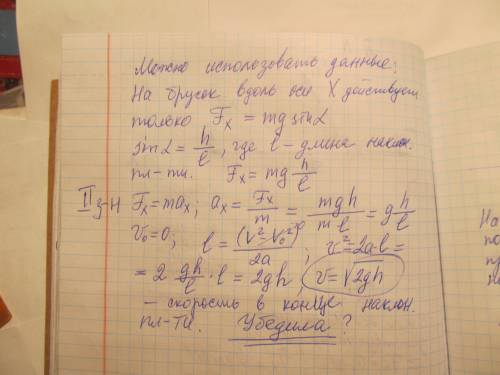 Можно использовать данные:
На брусок вдоль оси X действует
только Fₓ = mg sinα
sinα = h/l, где l – длина наклон.
пл-ти. Fₓ = mg h/l
II з-н Fₓ = maₓ; aₓ = Fₓ/m = mgh/ml = g h/l
v₀=0; l = (V²-V₀²)/2a; v²=2al=
= 2 gh/l · l = 2gh, v=√2gh
– скорость в конце наклон.
пл-ти. Убедила?
На
по
пр